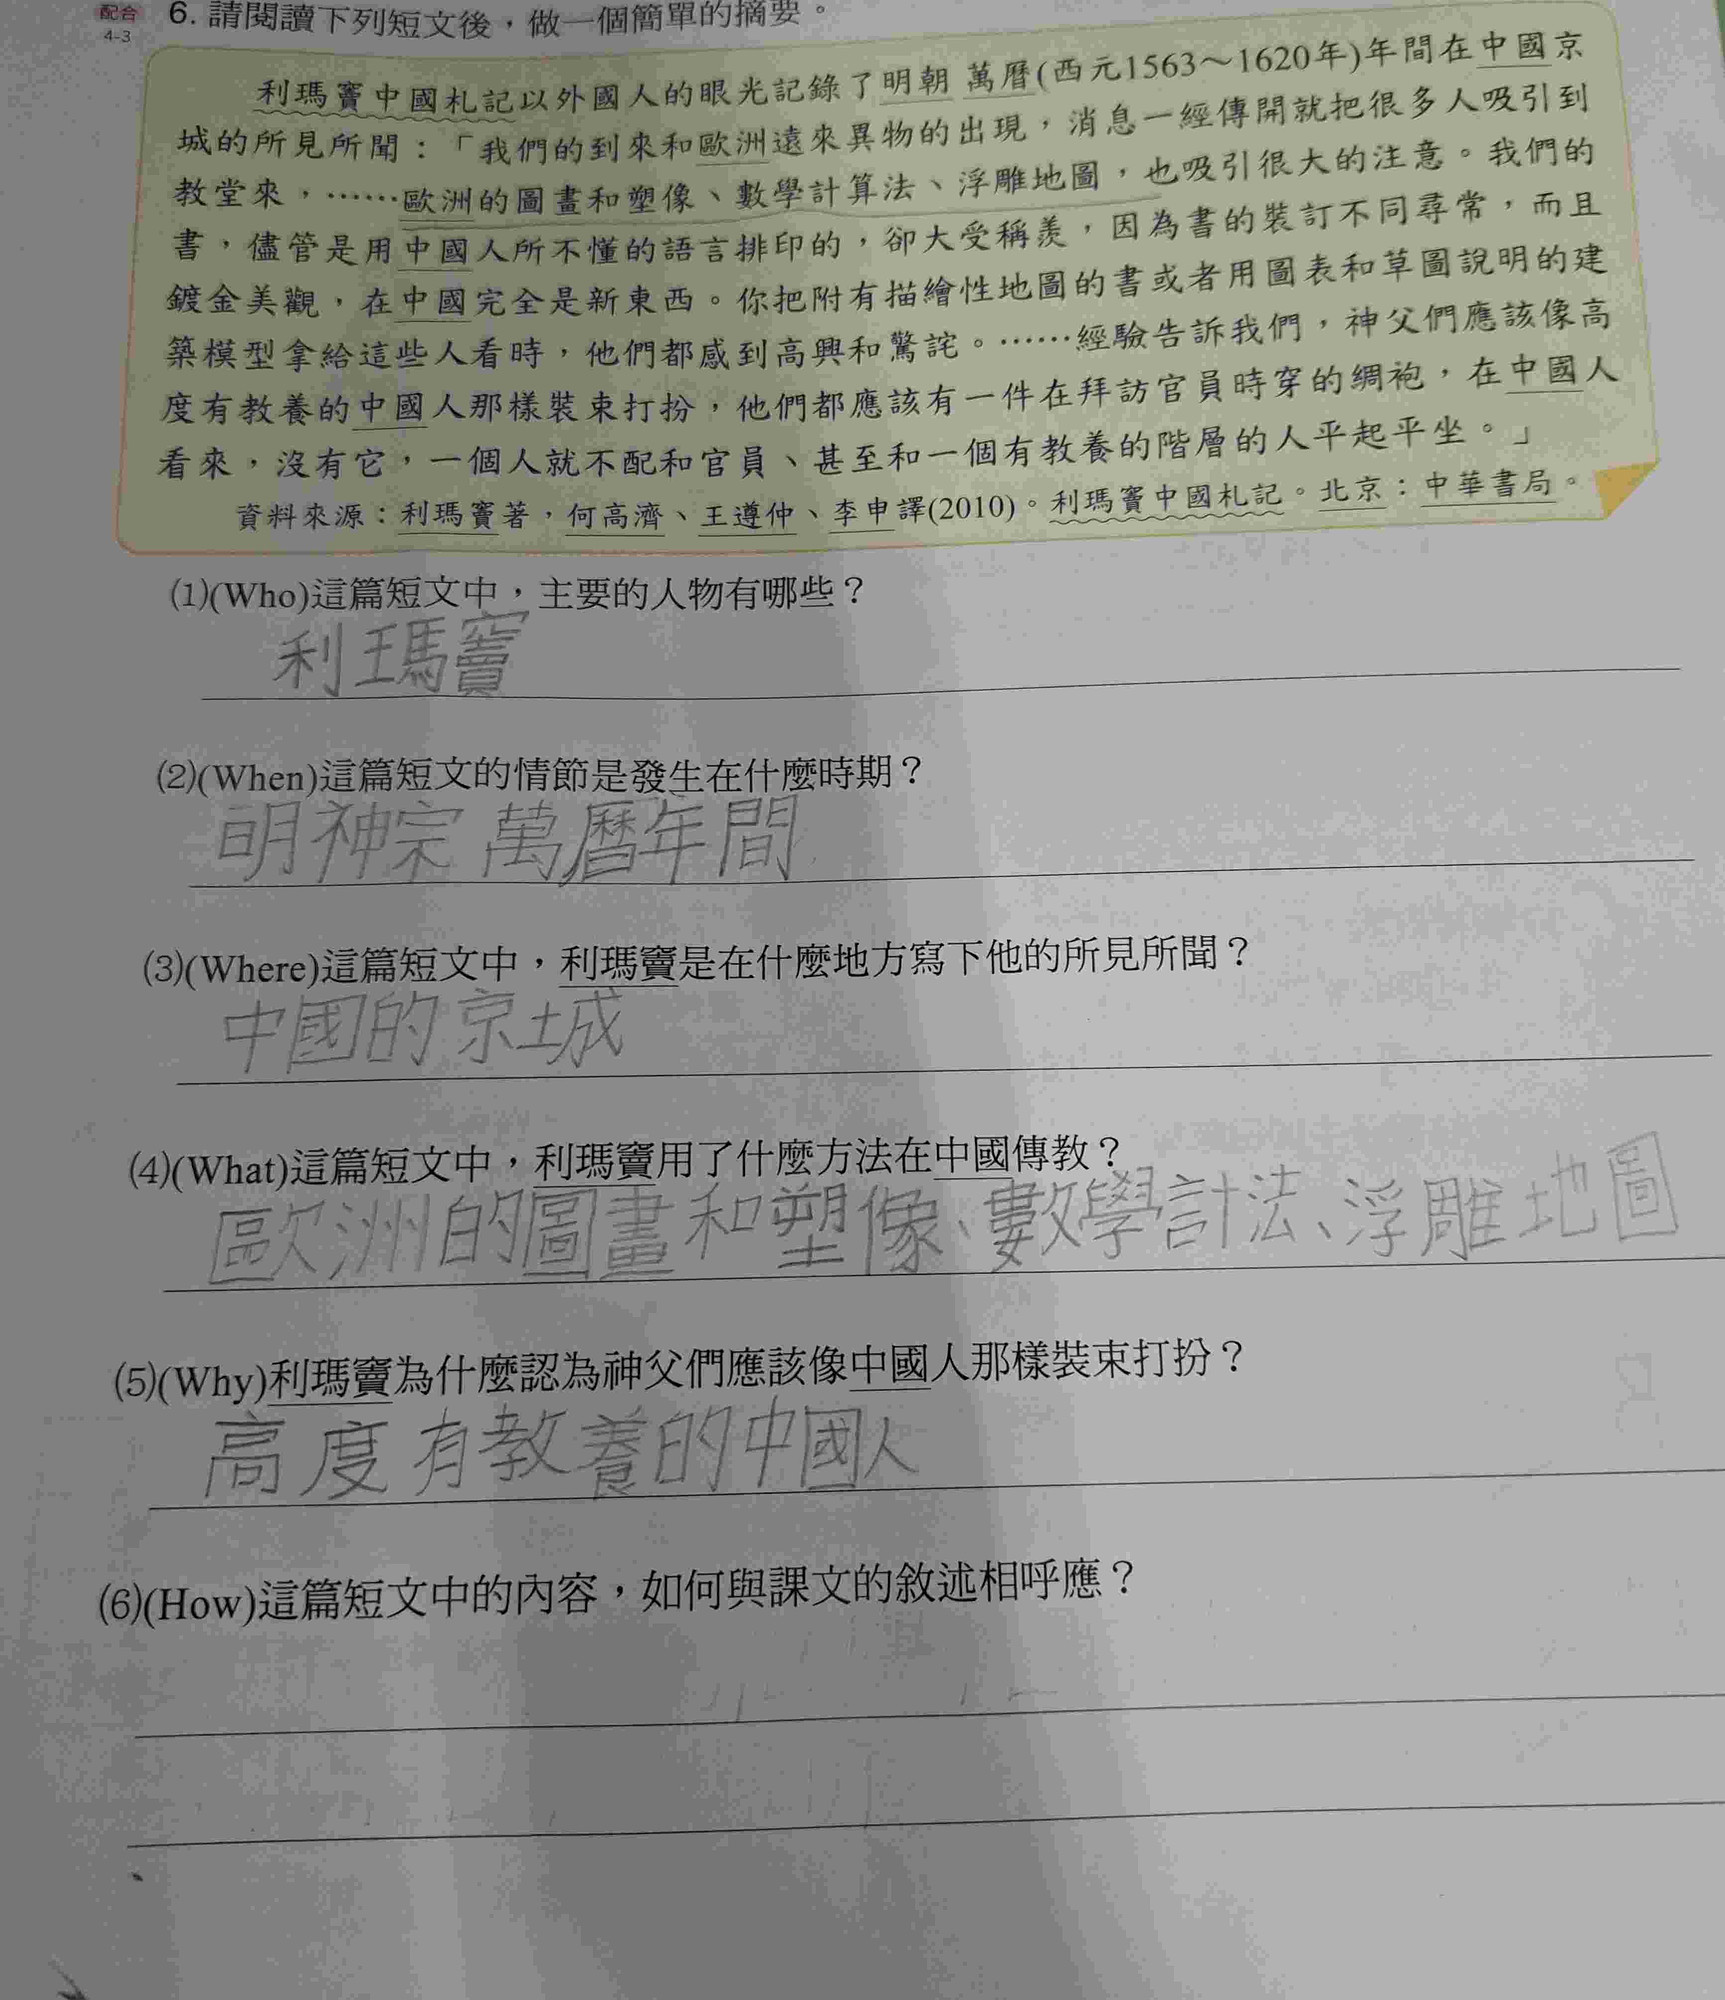 配合
4-3
6. 請閱讀下列短文後，做一個簡單的摘要。
利瑪竇中國札記以外國人的眼光記錄了明朝 萬曆(西元1563～1620年)年間在中國京
城的所見所聞：「我們的到來和歐洲遠來異物的出現，消息一經傳開就把很多人吸引到
教堂來，……歐洲的圖畫和塑像、數學計算法、浮雕地圖，也吸引很大的注意。我們的
書，儘管是用中國人所不懂的語言排印的，卻大受稱羨，因為書的裝訂不同尋常，而且
鍍金美觀，在中國完全是新東西。你把附有描繪性地圖的書或者用圖表和草圖說明的建
築模型拿給這些人看時，他們都感到高興和驚詫。……經驗告訴我們，神父們應該像高
度有教養的中國人那樣裝束打扮，他們都應該有一件在拜訪官員時穿的綢袍，在中國人
看來，沒有它，一個人就不配和官員、甚至和一個有教養的階層的人平起平坐。」
資料來源：利瑪竇著，何高濟、王遵仲、李申譯(2010)。利瑪竇中國札記。北京：中華書局。
(1)(Who)這篇短文中，主要的人物有哪些？
利瑪竇
(2)(When)這篇短文的情節是發生在什麼時期？
明神宗萬曆年間
(3)(Where)這篇短文中，利瑪竇是在什麼地方寫下他的所見所聞？
中國的京城
(4)(What)這篇短文中，利瑪竇用了什麼方法在中國傳教？
歐洲的圖畫和塑像、數學計法、浮雕地圖
(5)(Why)利瑪竇為什麼認為神父們應該像中國人那樣裝束打扮？
高度有教養的中國人
(6)(How)這篇短文中的內容，如何與課文的敘述相呼應？